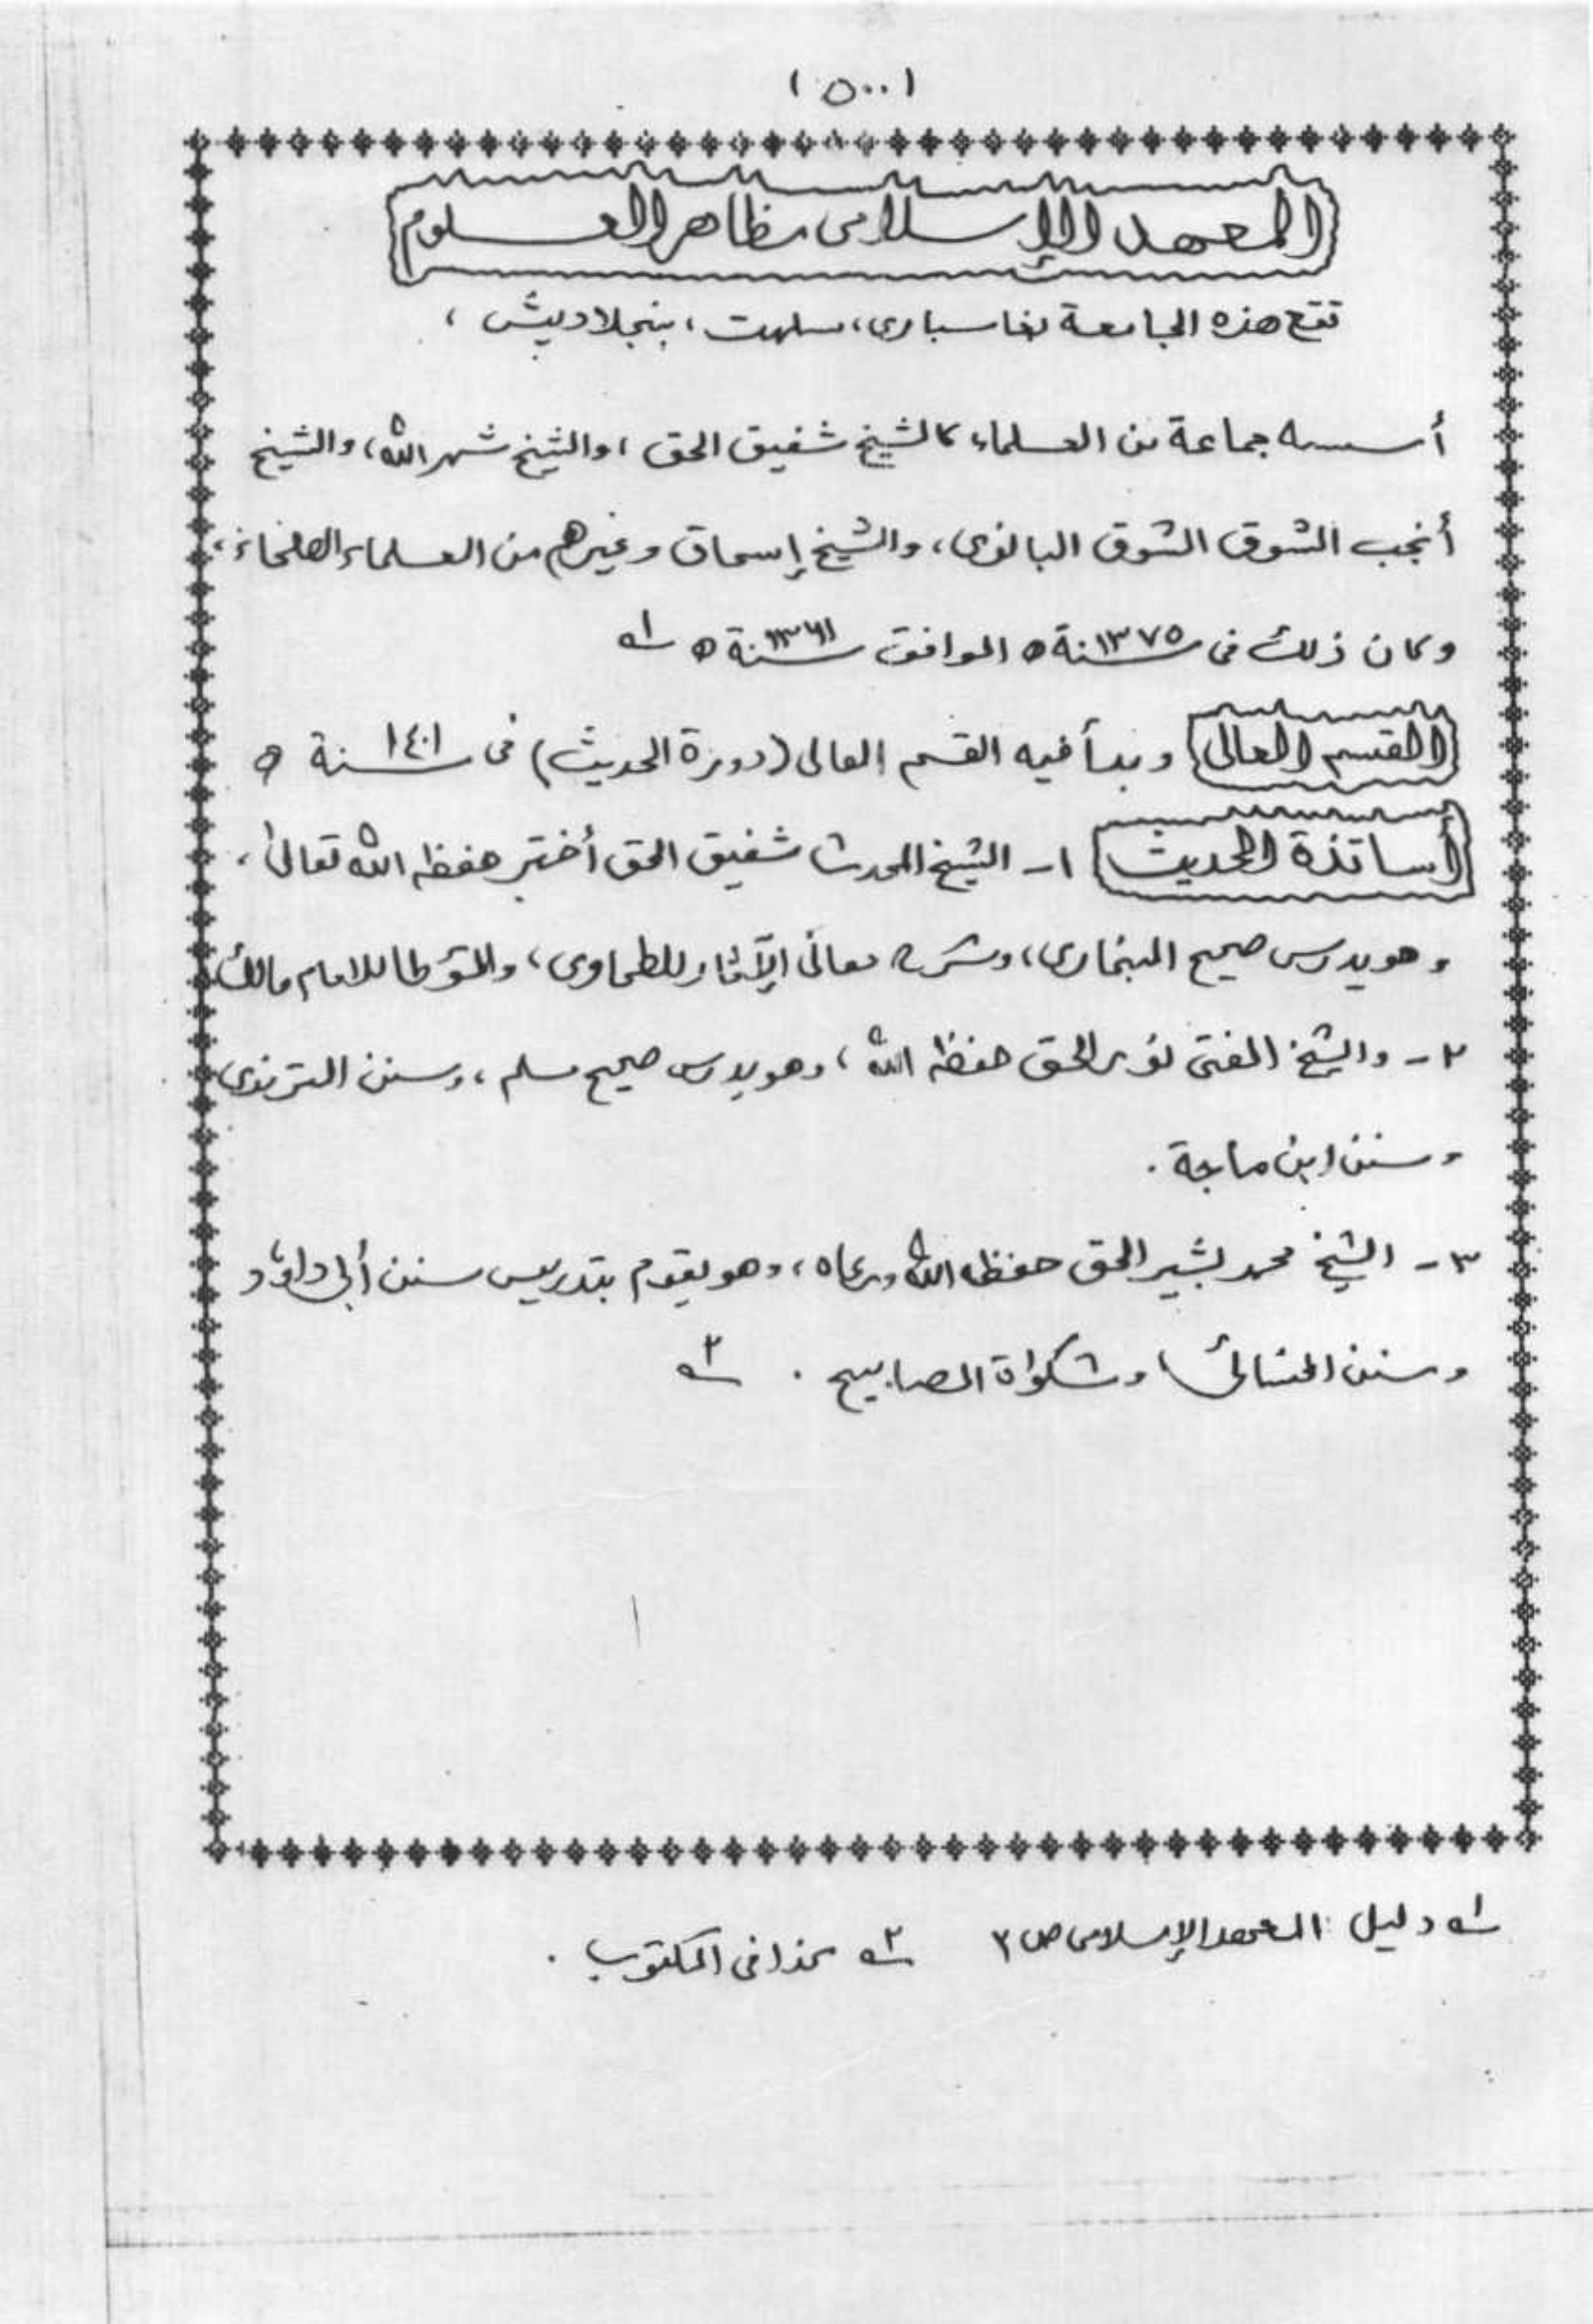 (٥٠٠)
المعهد الإسلامى مظاهر العلوم
تقع هذه الجامعة بغاسبارى، سلهت، بنجلاديش،
أسسه جماعة من العلماء كالشيخ شفيق الحق، والشيخ شهر الله، والشيخ
أنجب الشوق الشوق البالغوى، والشيخ إسحاق وغيرهم من العلماء الصلحاء،
وكان ذلك فى سنة ١٣٧٥ه الموافق سنة ه ١
القسم العالى وبدأ فيه القسم العالى (دورة الحديث) فى سنة ١٤٠١ ه
أساتذة الحديث ١- الشيخ المحدث شفيق الحق أختر حفظه الله تعالى،
وهو يدرس صحيح البخارى، وشرح معانى الآثار للطحاوى، والمؤطا للامام مالك
٢- والشيخ المفتى نور الحق حفظه الله، وهو يدرس صحيح مسلم، وسنن الترمذى
وسنن ابن ماجة.
٣- الشيخ محمد بشير الحق حفظه الله ورعاه، وهو يقوم بتدريس سنن أبى داؤد
وسنن النسائى ومشكواة المصابيح. ٢
١ دليل المعهد الإسلامى ص ٢ ٢ كذا فى المكتوب.